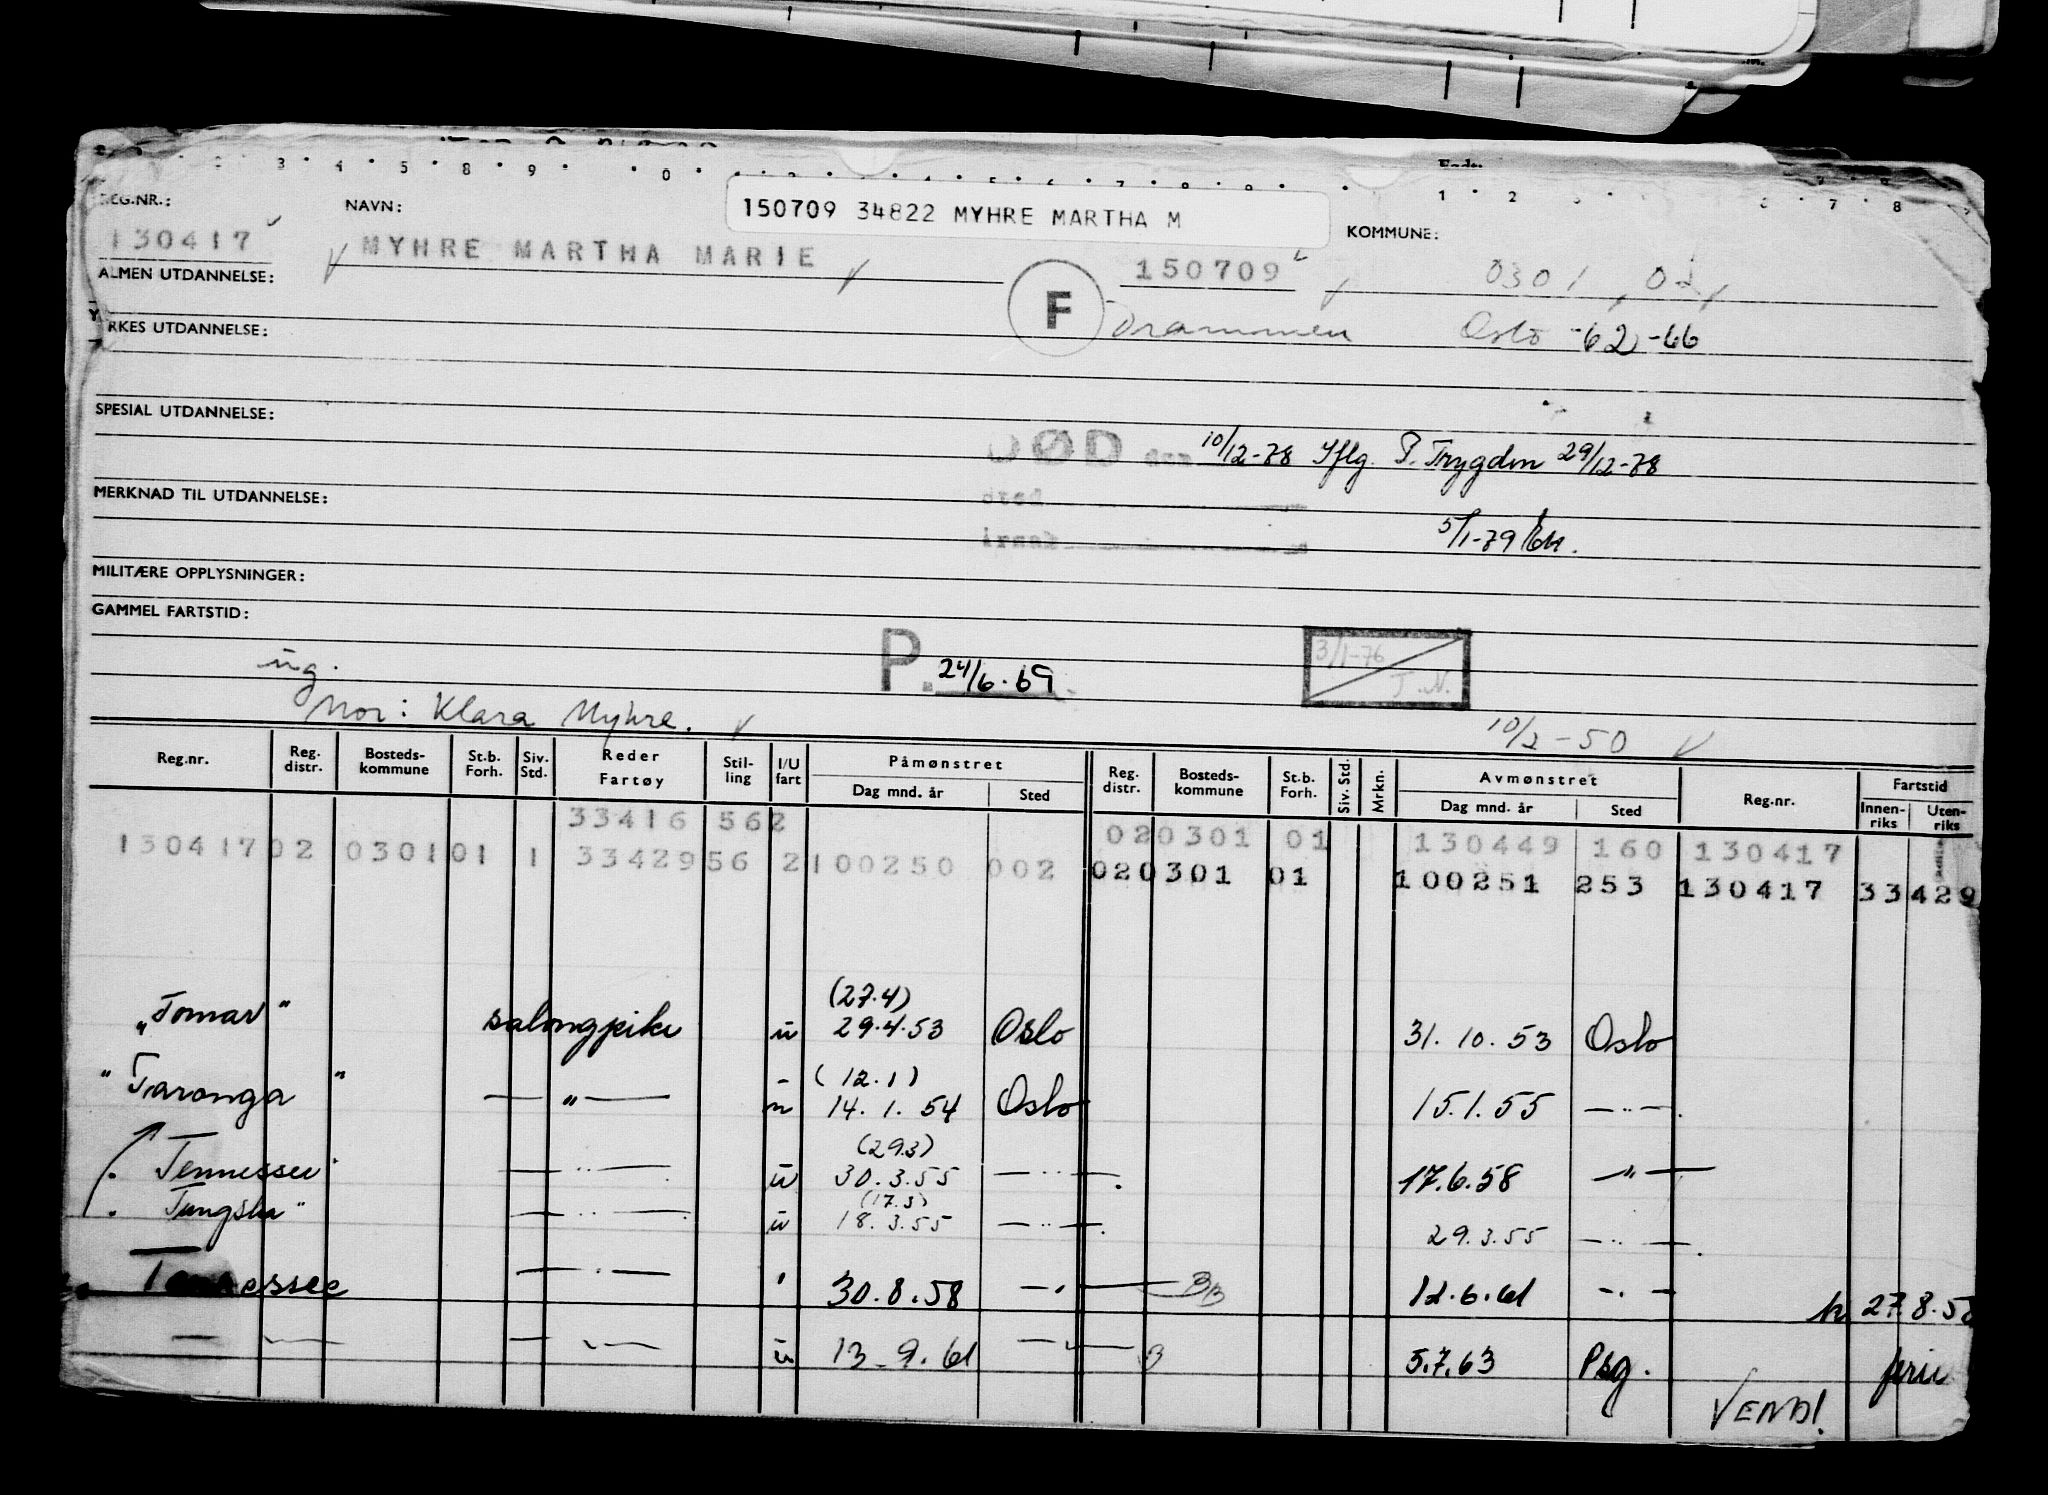 REG.NR.: NAVN: 150709 34822 MYHRE MARTHA M KOMMUNE:
130417 MYHRE MARTHA MARIE 150709 0301
ALMEN UTDANNELSE:
F
YRKES UTDANNELSE: Drammen Oslo -62-66
SPESIAL UTDANNELSE:
DØD den 10/12-78 Iflg. P. Trygden 29/12-78
MERKNAD TIL UTDANNELSE: sted
årsak 5/1-79
MILITÆRE OPPLYSNINGER:
GAMMEL FARTSTID:
ug. P. 24/6.69 3/1-76 T.N.
Mor: Klara Myhre. 10/2-50
Reg.nr. Reg. distr. Bosteds-kommune St.b. Forh. Siv. Std. Reder Fartøy Stil-ling I/U fart Påmønstret Reg. distr. Bosteds-kommune St.b. Forh. Siv. Std. Mrkn. Avmønstret Reg.nr. Fartstid
Dag mnd. år Sted Dag mnd. år Sted Innen-riks Uten-riks
33416 562 020301 01 130449 160 130417
130417 02 0301 01 1 33429 56 2 100250 002 020301 01 100251 253 130417 33429
(27.4)
"Tomar" salongpike u 29.4.53 Oslo 31.10.53 Oslo
(12.1)
"Taronga" — " — u 14.1.54 Oslo 15.1.55 — " —
(29.3)
Tennessee" — " — u 30.3.55 — " — 17.6.58 — " —
(17.3)
Tungsha" — " — u 18.3.55 — " — 29.3.55 — " —
Tennessee — " — " 30.8.58 — " — 12.6.61 — " — 27.8.58
— — — — u 13.9.61 — " — B 5.7.63 Psg. ferie
VEND!